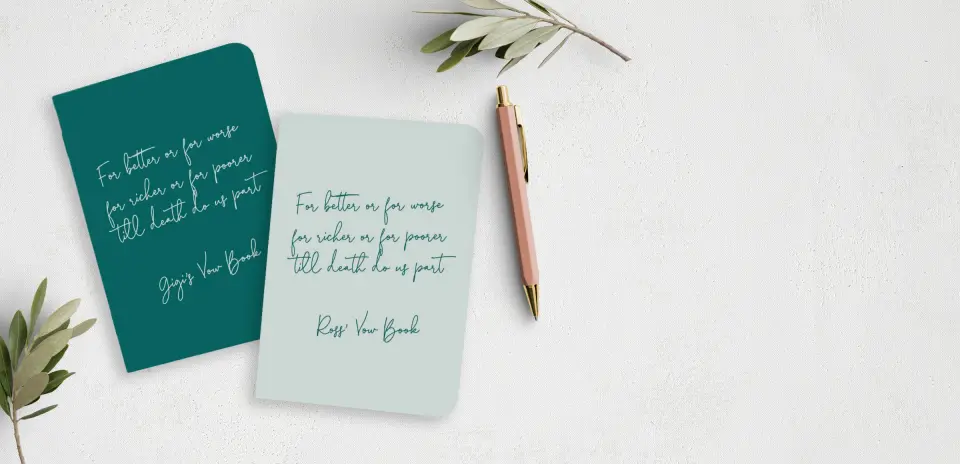 For better or for worse
for richer or for poorer
till death do us part
Gigi's Vow Book
For better or for worse
for richer or for poorer
till death do us part
Ross' Vow Book